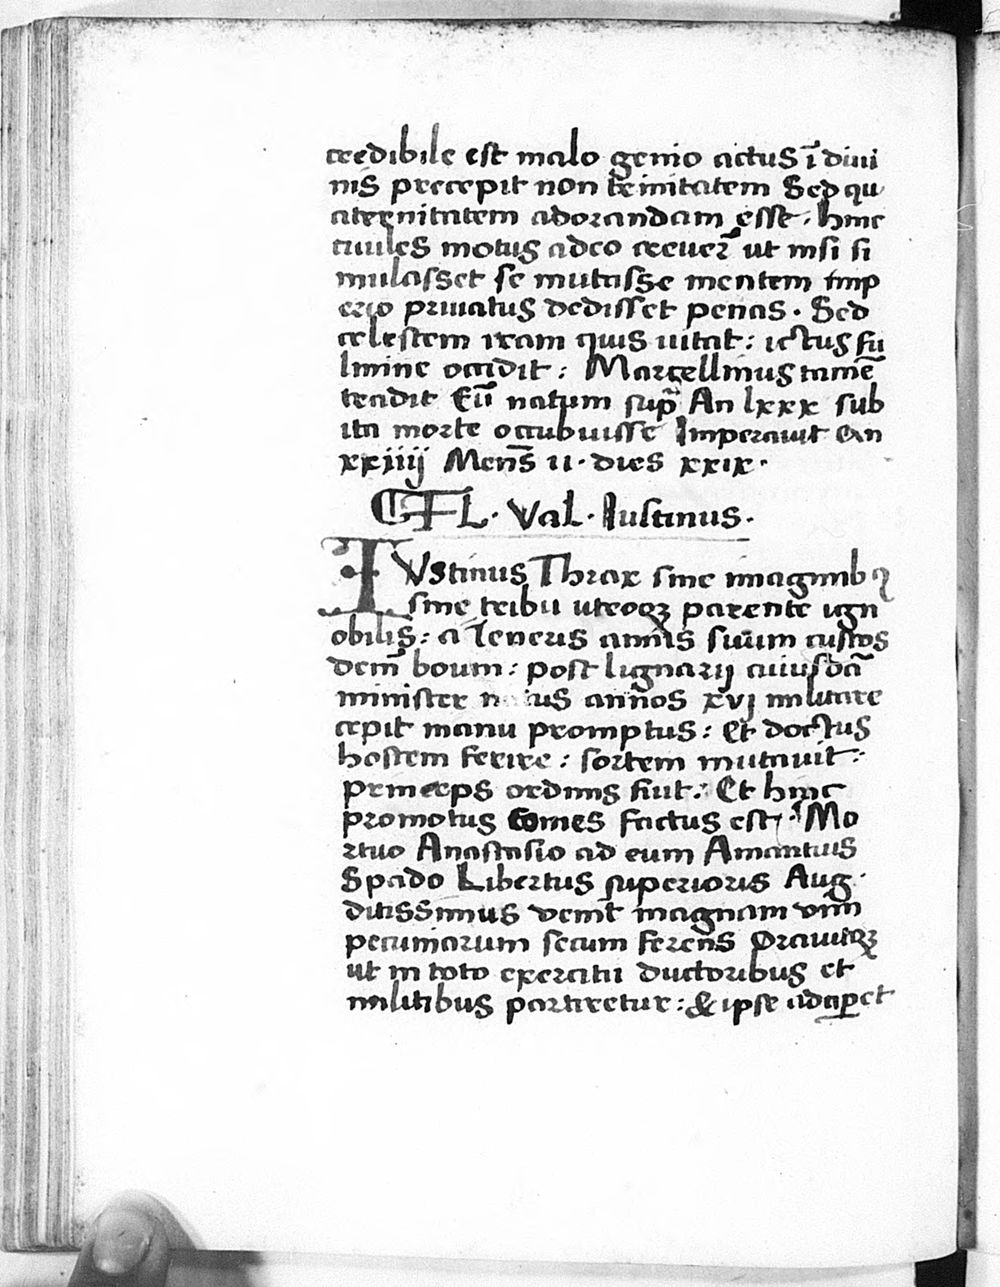 credibile est malo genio actus ī diui
nis precepit non trinitatem Sed qu
aternitatem adorandam esse · hinc
ciuiles motus adeo creuer̄ ut nisi si
mulasset se mutasse mentem imp
erio priuatus dedisset penas · Sed
celestem iram quis uitat : ictus fu
lmine occidit : Marcellinus tamē
tradit Eū natum sup̄ An lxxx sub
ita morte occubuisse Imperauit an
xxiiij Mens̄ ii · dies xxix ·
FL · Val · Iustinus ·
IVstinus Thrax sine imaginibꝫ
sine tribu utroqꝫ parente ign
obilis : a teneris annis suum custos
dem̄ boum : post lignarij cuiusdā
minister natus annos xvj militare
cepit manu promptus : et doctus
hostem ferire : sortem mutauit :
princeps ordinis fiut : Et hinc
promotus comes factus est : Mo
rtuo Anastasio ad eum Amantius
Spado Libertus superioris Aug ·
ditissimus venit magnam vim
pecuniarum secum ferens Orauitqꝫ
ut in toto exercitu ductoribus et
militibus partiretur : & ipse